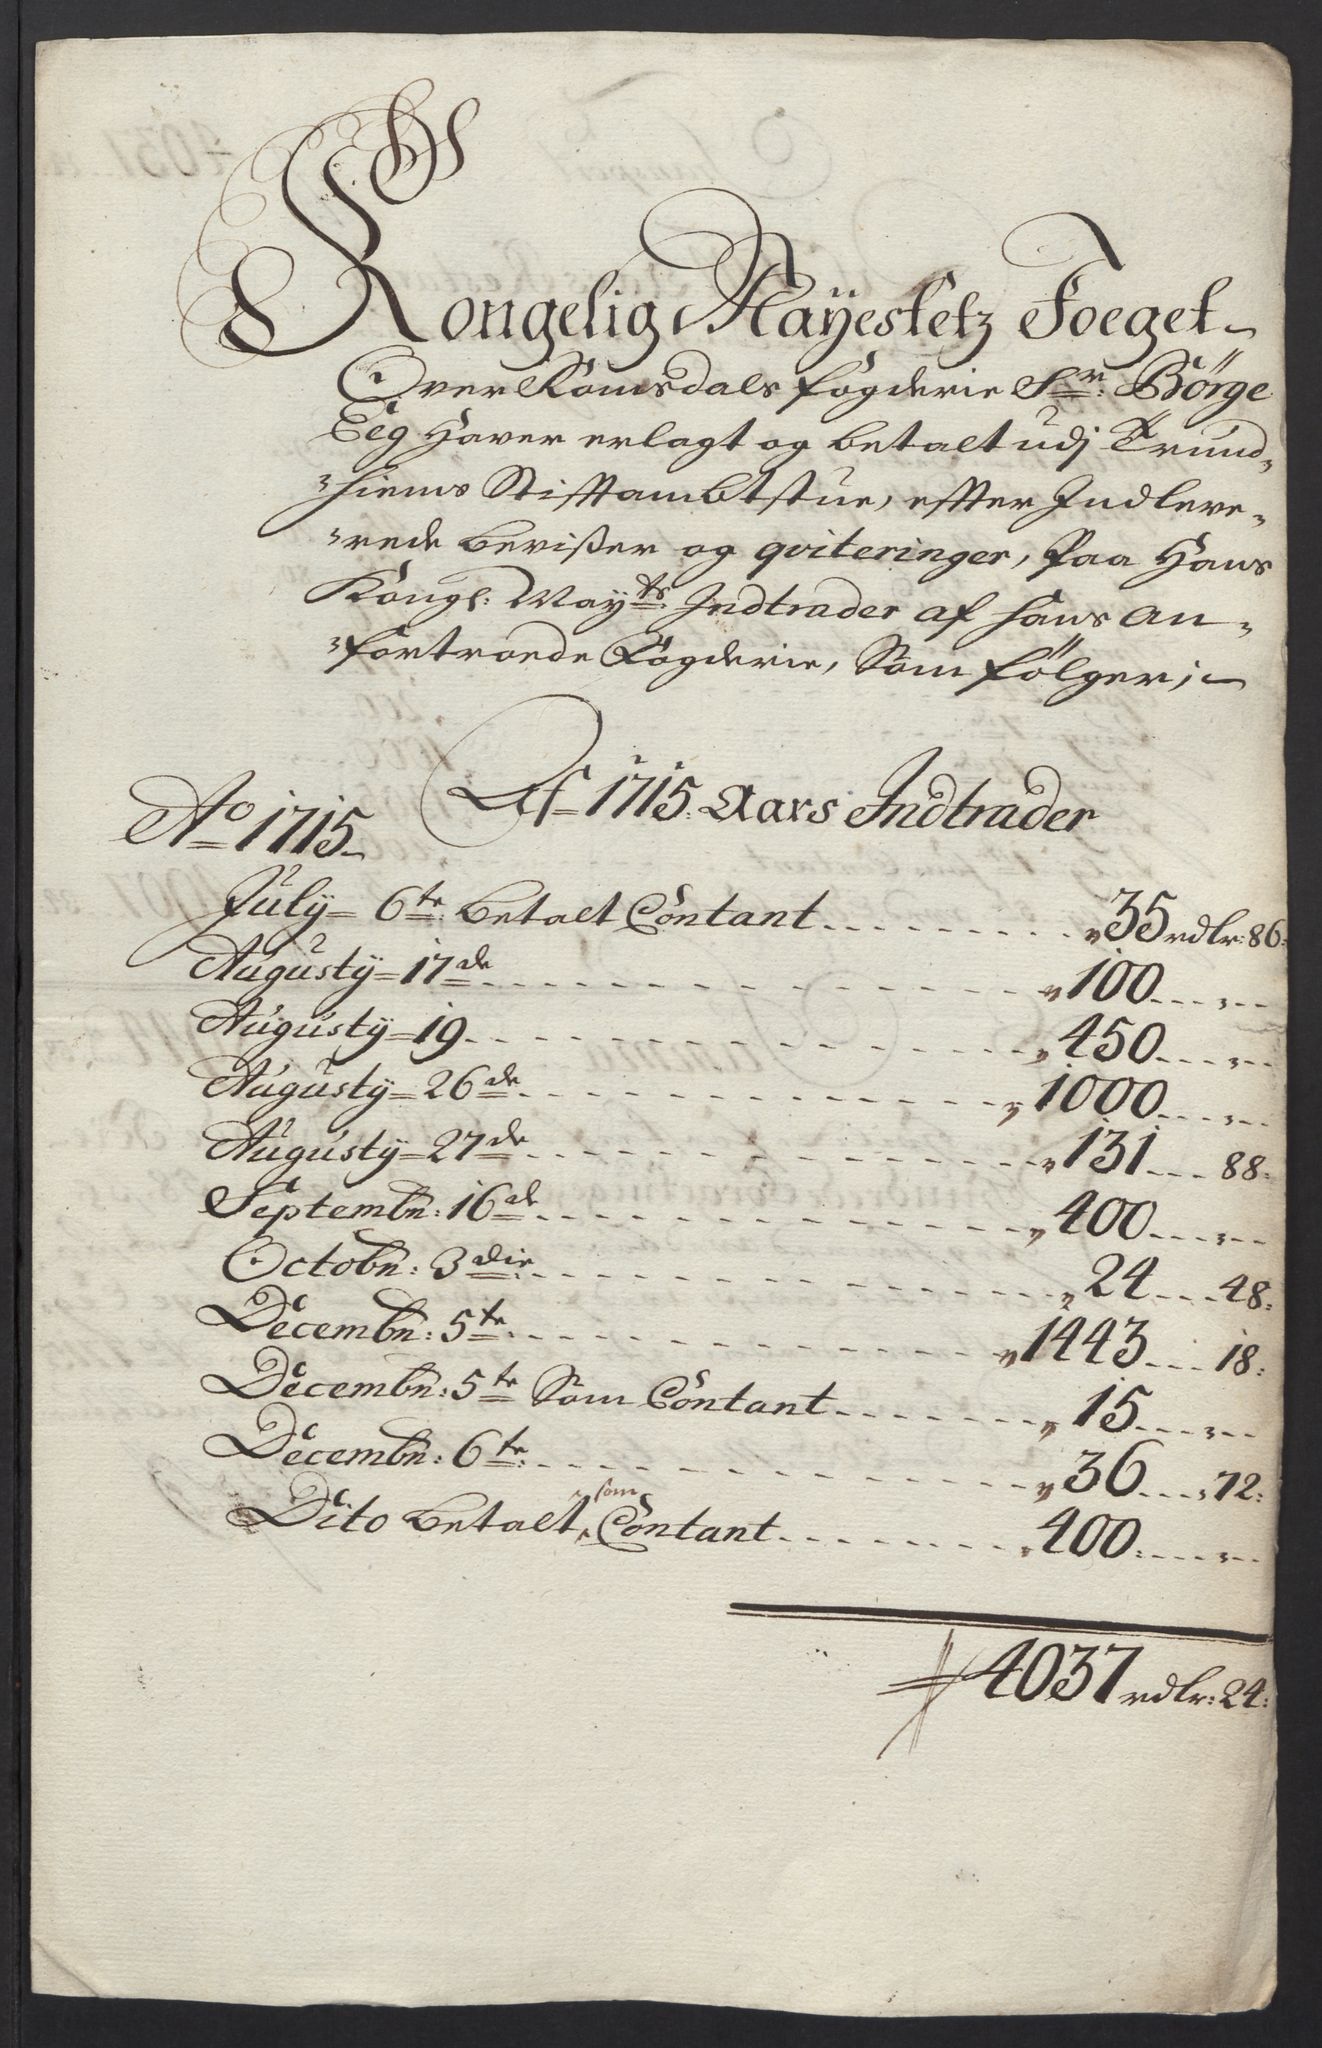 Kongelig Mayestetz Foeget
Over Romsdals fögderie Sr: Börge
Eeg Haver erlagt og betalt udj Trund-
-hiems Stifftambtstue, effter Indleve-
-rede bevißer og qviteringer, Paa Hans
Kongl: Mayts Indtrader af hans an-
-fortroede Fögderie, Som fölger;
Af 1715 Aars Indtrader
Ao 1715
July 6te: betalt Contant 35 rdlr: 86:
Augusty 17de 100
Augusty 19 450
Augusty 26de 1000
Augusty 27de 131 88:
Septembr: 16de 400
Octobr: 3die 24 48:
Decembr: 5te 1443 18:
Decembr: 5te Som Contant 15
Decembr: 6te: 36 72:
Dito betalt som Contant 400
4037 rdlr: 24: